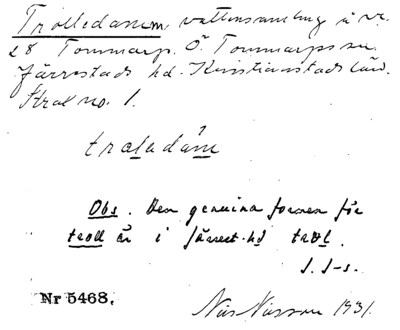 Trolledammen, vattensamling å nr.
28 Tommarp. Ö. Tommarps sn.
Järrestads hd. Kristianstads län.
Skal no. 1.
traladám
Obs. Den genuina formen för
troll är i Järrest. hd trol.
J. J-s.
Nr 5468.
Nils Nilsson 1931.